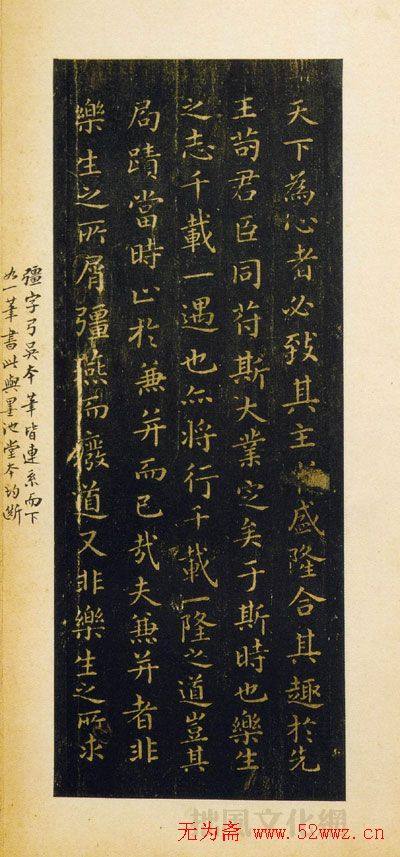 天下為心者必致其主於盛隆合其趣於先
王苟君臣同符斯大業定矣于斯時也樂生
之志千載一遇也亦將行千載一隆之道豈其
局蹟當時止於兼并而已哉夫兼并者非
樂生之所屑彊燕而廢道又非樂生之所求
彊字弓吳本筆皆連系而下
如一筆書此與墨池堂本均斷
无为斋 www.52wwz.cn